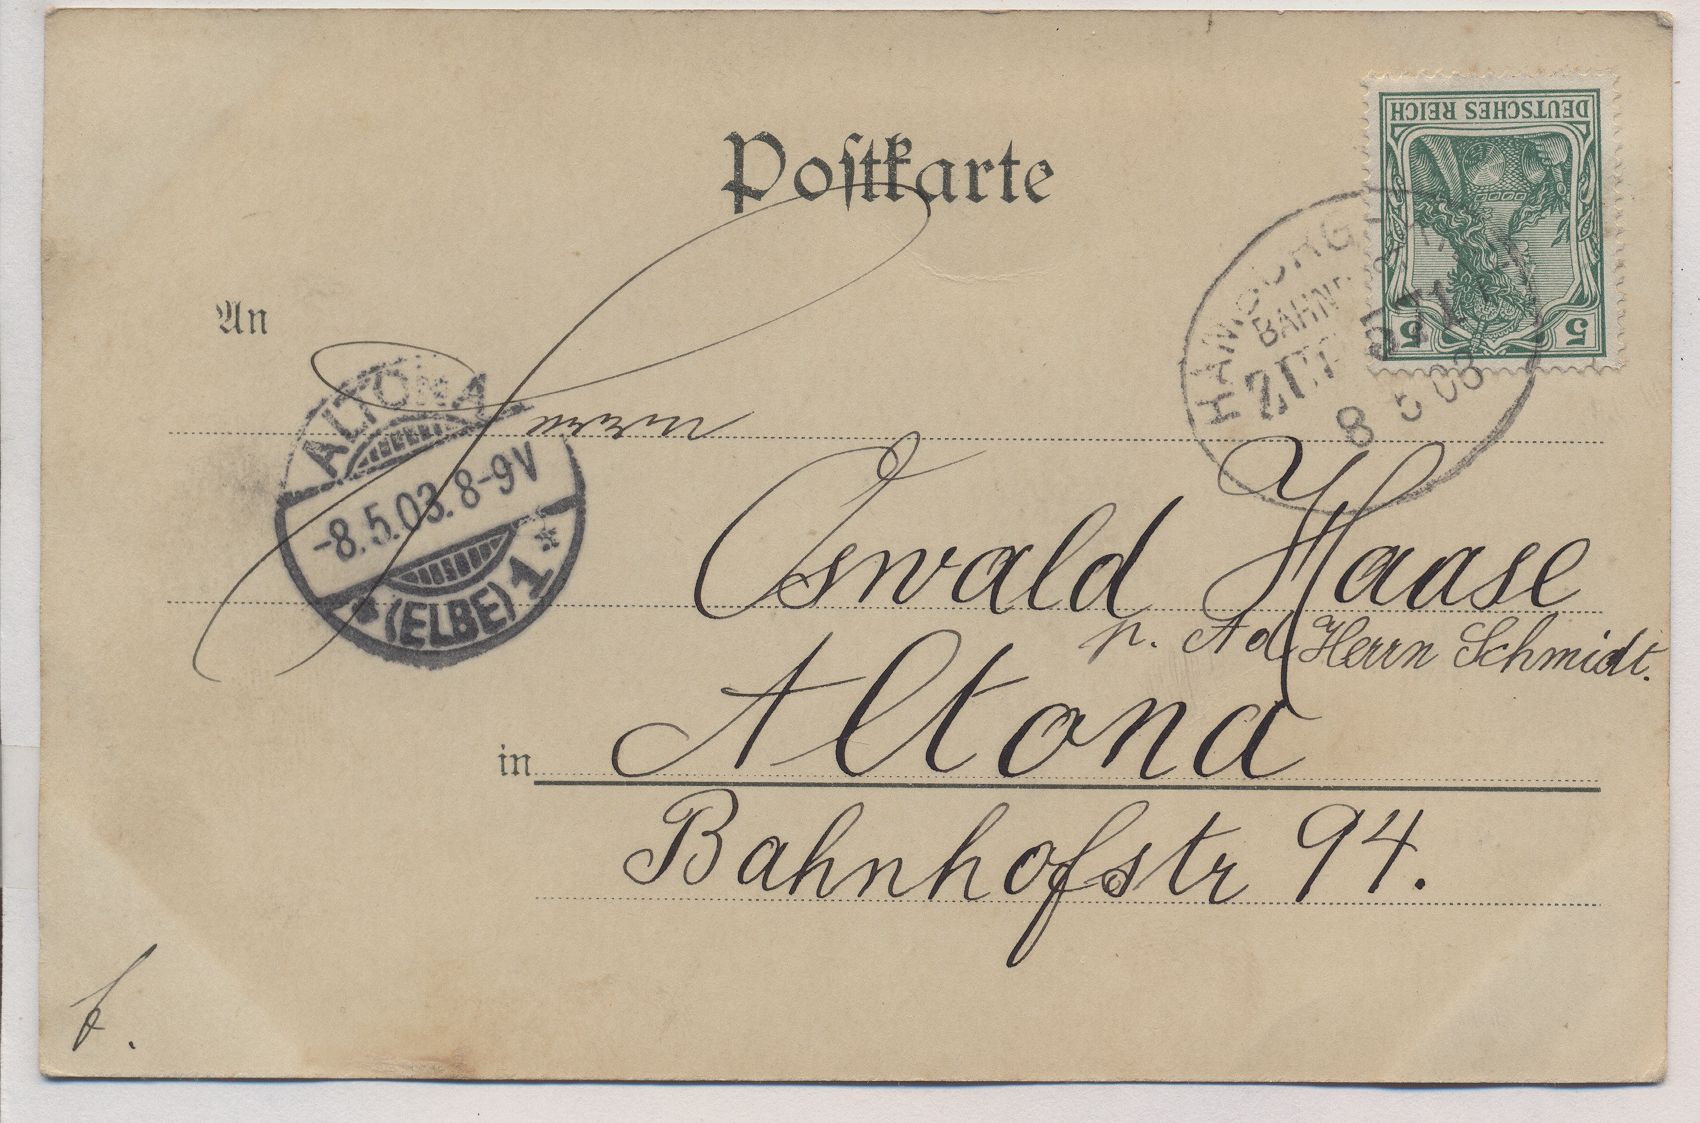 Postkarte
DEUTSCHES REICH
5 5
BAHNP
ZUG 571
8 5 03
An
ALTONA
-8.5.03. 8-9V
* (ELBE) 1 *
Herrn
Oswald Haase
p. Ad. Herrn Schmidt.
in Altona
Bahnhofstr 94.
f.